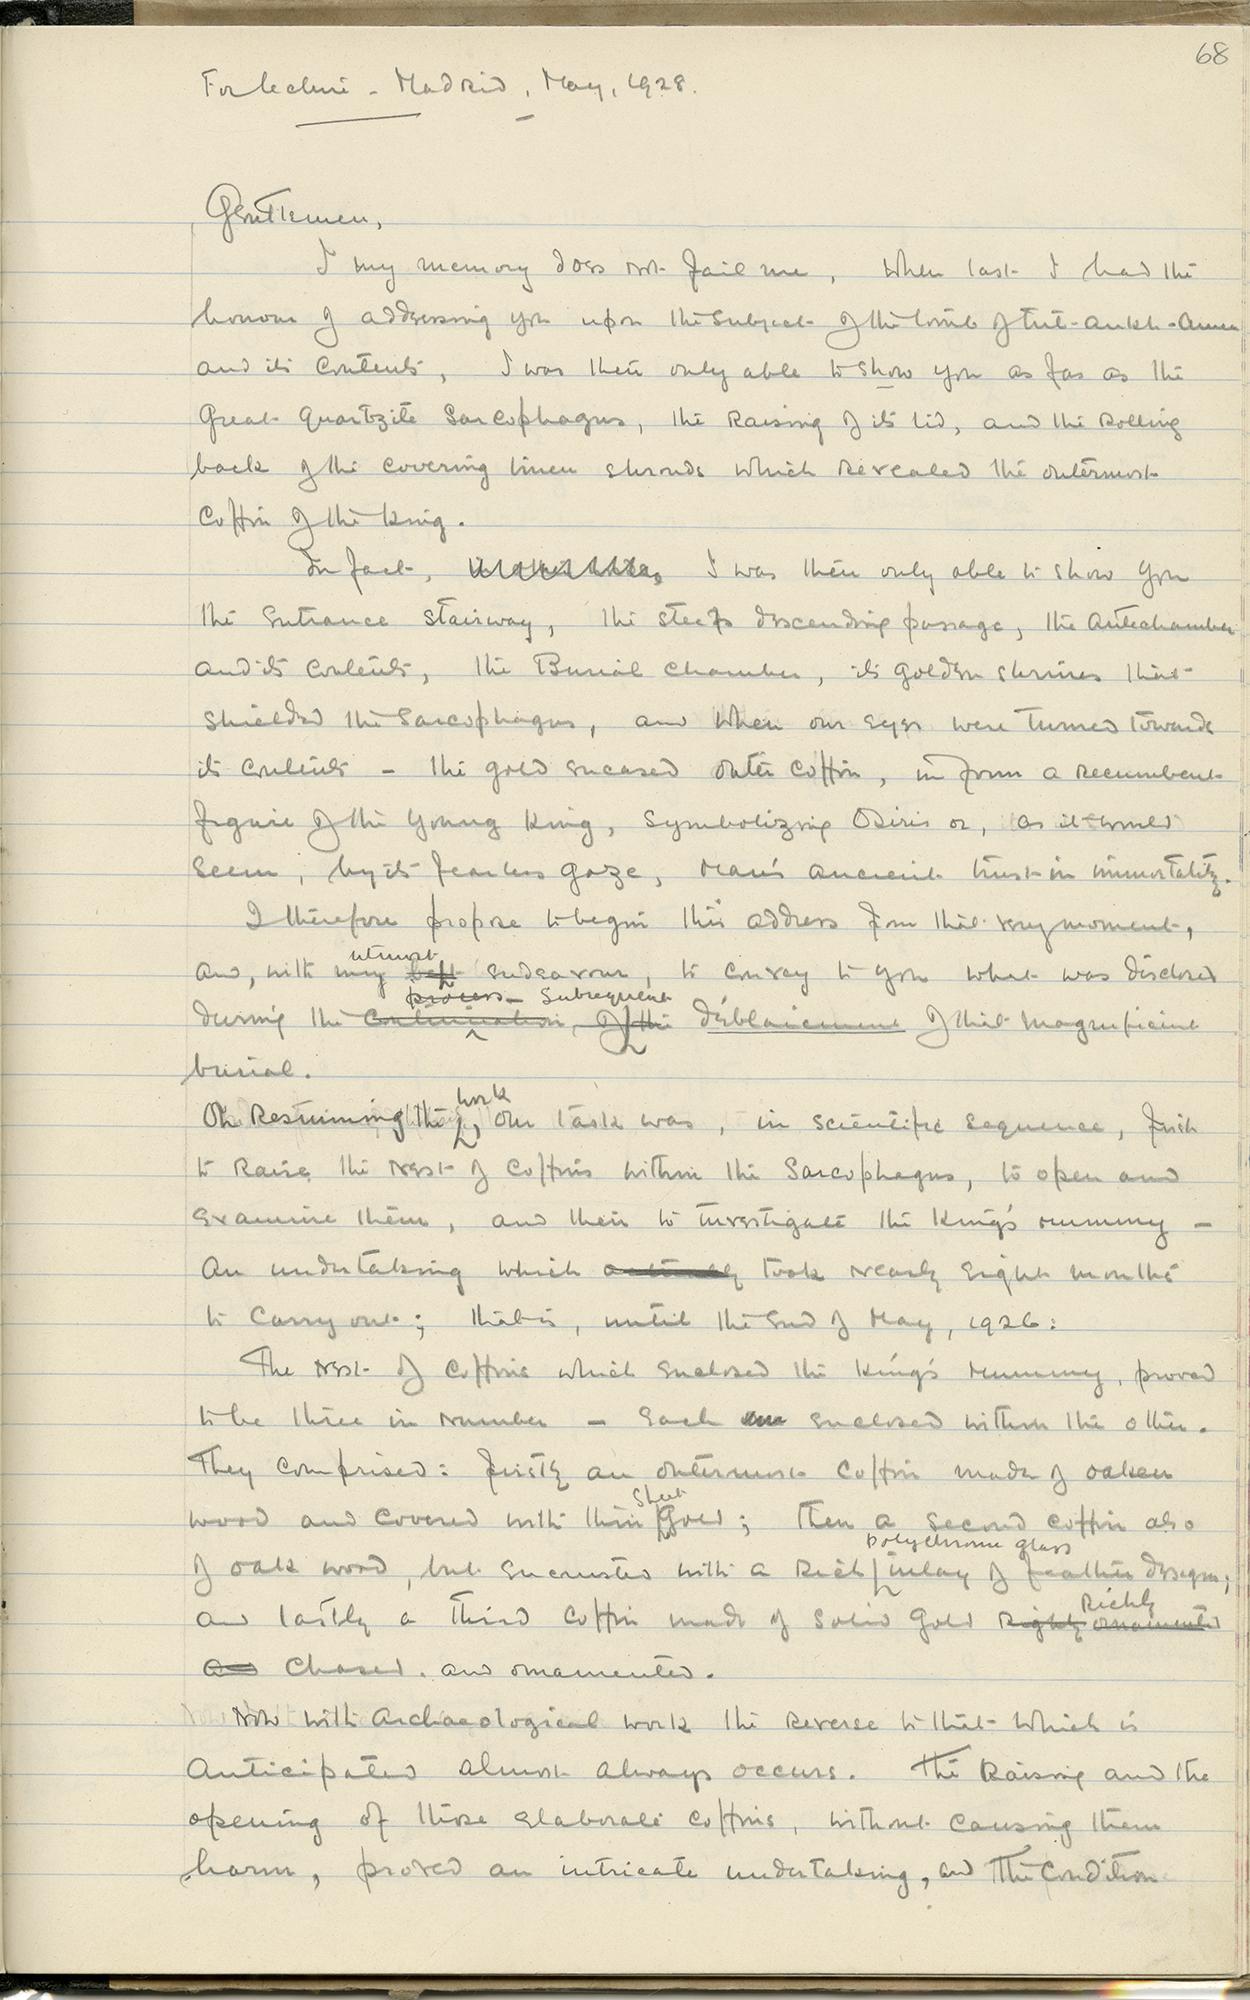 68
For lecture - Madrid, May, 1928.
Gentlemen,
If my memory does not fail me, when last I had the
honour of addressing you upon the subject of the tomb of Tut-ankh-Amen
and its contents, I was then only able to show you as far as the
Great Quartzite Sarcophagus, the raising of its lid, and the rolling
back of the covering linen shrouds which revealed the outermost
coffin of the King.
In fact, I was then only able to show you
the entrance stairway, the steep descending passage, the Antechamber
and its contents, the Burial Chamber, its golden shrines that
shielded the Sarcophagus, and when our eyes were turned towards
its contents - the gold encased outer coffin, in form a recumbent
figure of the young King, symbolizing Osiris or, as it would
seem, by its fearless gaze, man's ancient trust in immortality.
I therefore propose to begin this address from that very moment,
utmost
and, with my best endeavour, to convey to you what was disclosed
process - subsequent
during the continuation, of the déblaiement of that magnificent
burial.
work
On Resuming the, our task was, in scientific sequence, first
to raise the nest of coffins within the Sarcophagus, to open and
examine them, and then to investigate the King's mummy -
An undertaking which actually took nearly eight months
to carry out; that is, until the end of May, 1926:
The nest of coffins which enclosed the King's mummy, proved
to be three in number - each one enclosed within the other.
They comprised: firstly an outermost coffin made of oaken
sheet
wood and covered with thin Gold; then a second coffin also
polychrome glass
of oak wood, but encrusted with a rich inlay of feather design;
Richly
and lastly a third coffin made of solid gold Richly ornamented
and chased. and ornamented.
Now with Archaeological work the reverse to that which is
Anticipated almost always occurs. The Raising and the
opening of those elaborate coffins, without causing them
harm, proved an intricate undertaking, and The condition